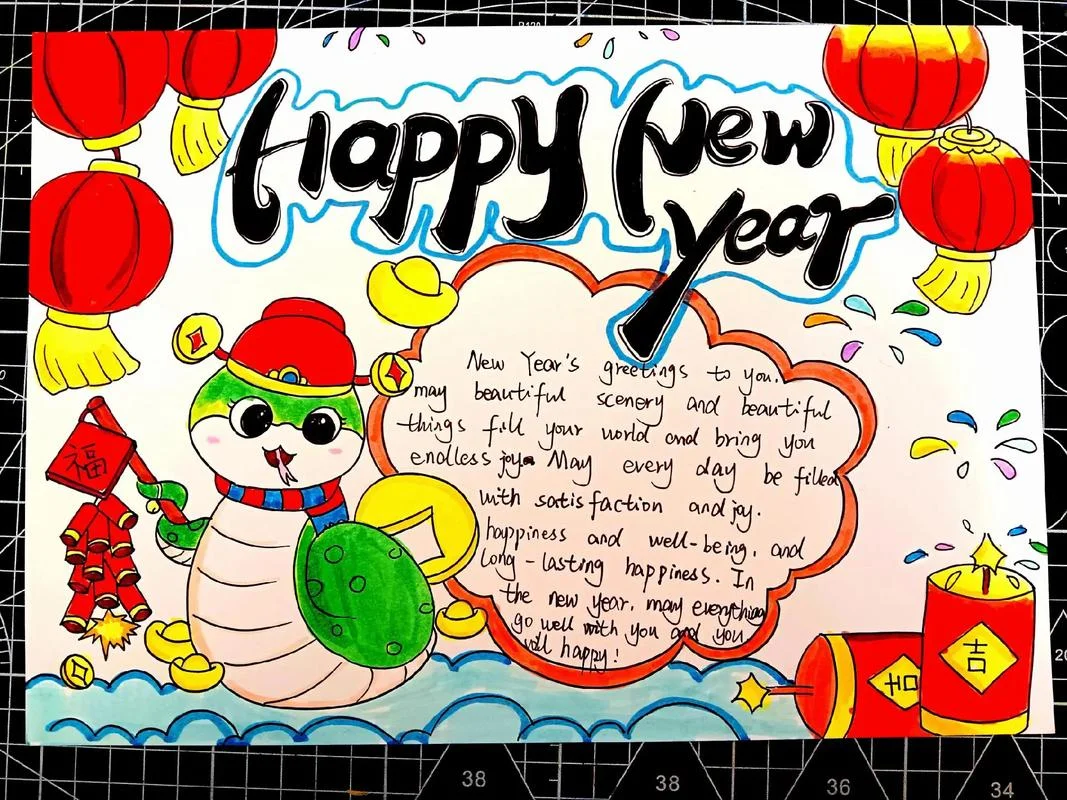 Happy New
year
New Year's greetings to you.
may beautiful scenery and beautiful
things fill your world and bring you
endless joy. May every day be filled
with satisfaction and joy.
happiness and well-being, and
long-lasting happiness. In
the new year, may everything
go well with you and you
will happy!
福
吉
吉
38
38
36
34